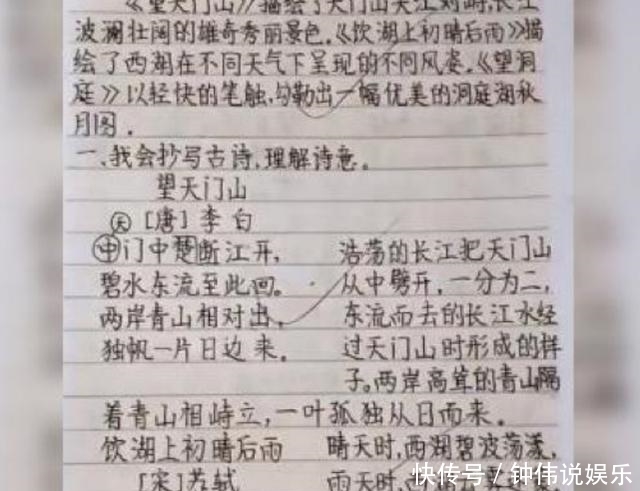 《望天门山》描绘了天门山夹江对峙,长江
波澜壮阔的雄奇秀丽景色。《饮湖上初晴后雨》描
绘了西湖在不同天气下呈现的不同风姿。《望洞
庭》以轻快的笔触,勾勒出一幅优美的洞庭湖秋
月图.
一、我会抄写古诗,理解诗意。
望天门山
天 [唐]李白
中门中楚断江开, 浩荡的长江把天门山
碧水东流至此回。 从中劈开,一分为二,
两岸青山相对出, 东流而去的长江水经
独帆一片日边来。 过天门山时形成的样
子。两岸高耸的青山隔
着青山相峙立,一叶孤独从日而来。
饮湖上初晴后雨 晴天时,西湖碧波荡漾,
[宋]苏轼 雨天时,
快传号 / 钟伟说娱乐